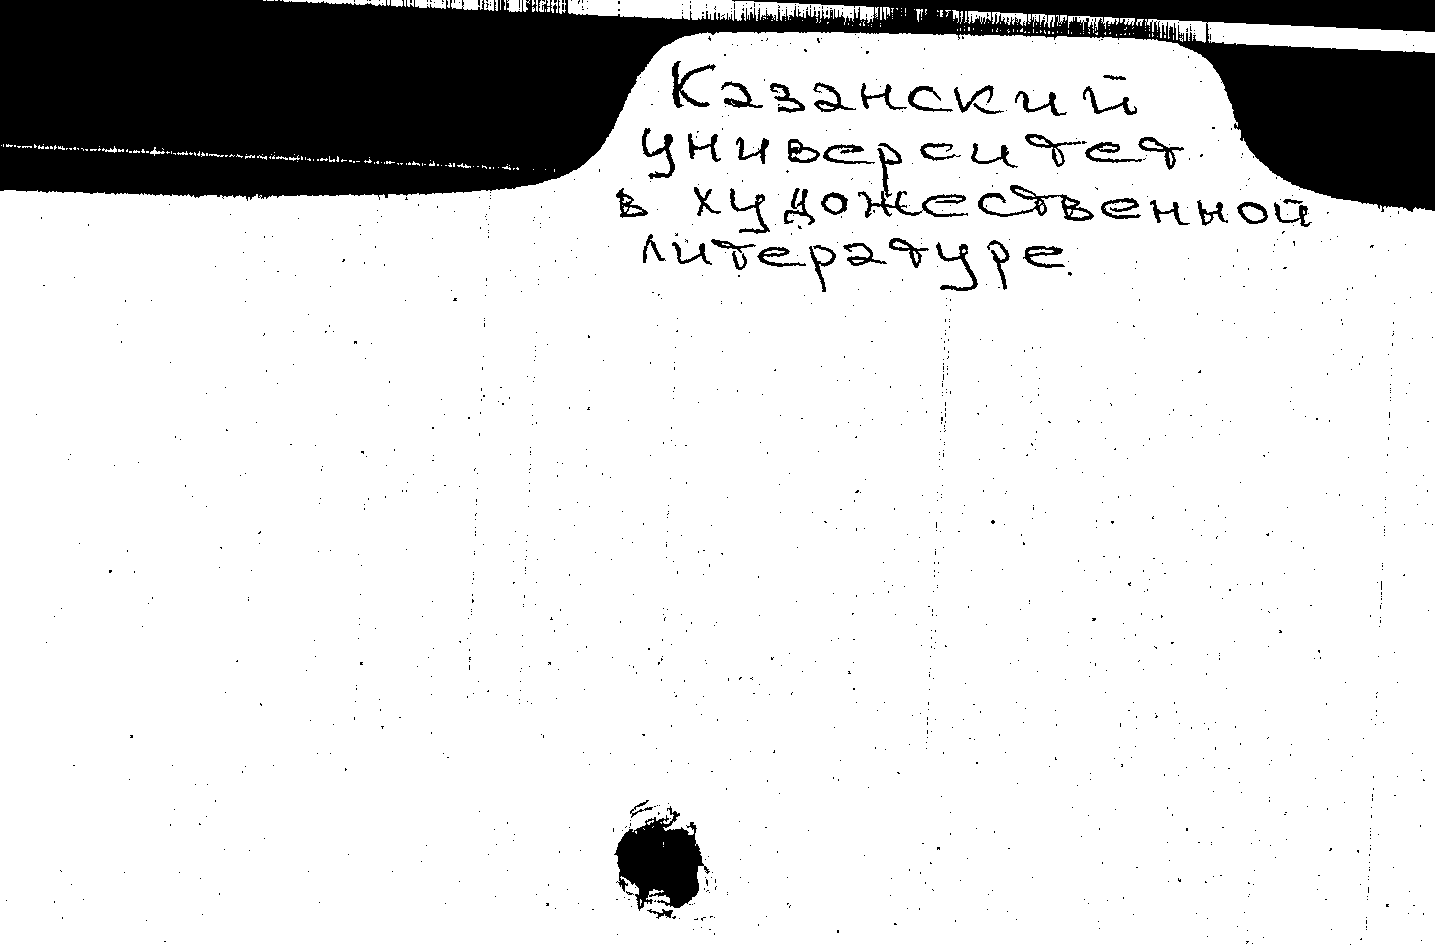 Казанский
университет
в художественной
литературе.